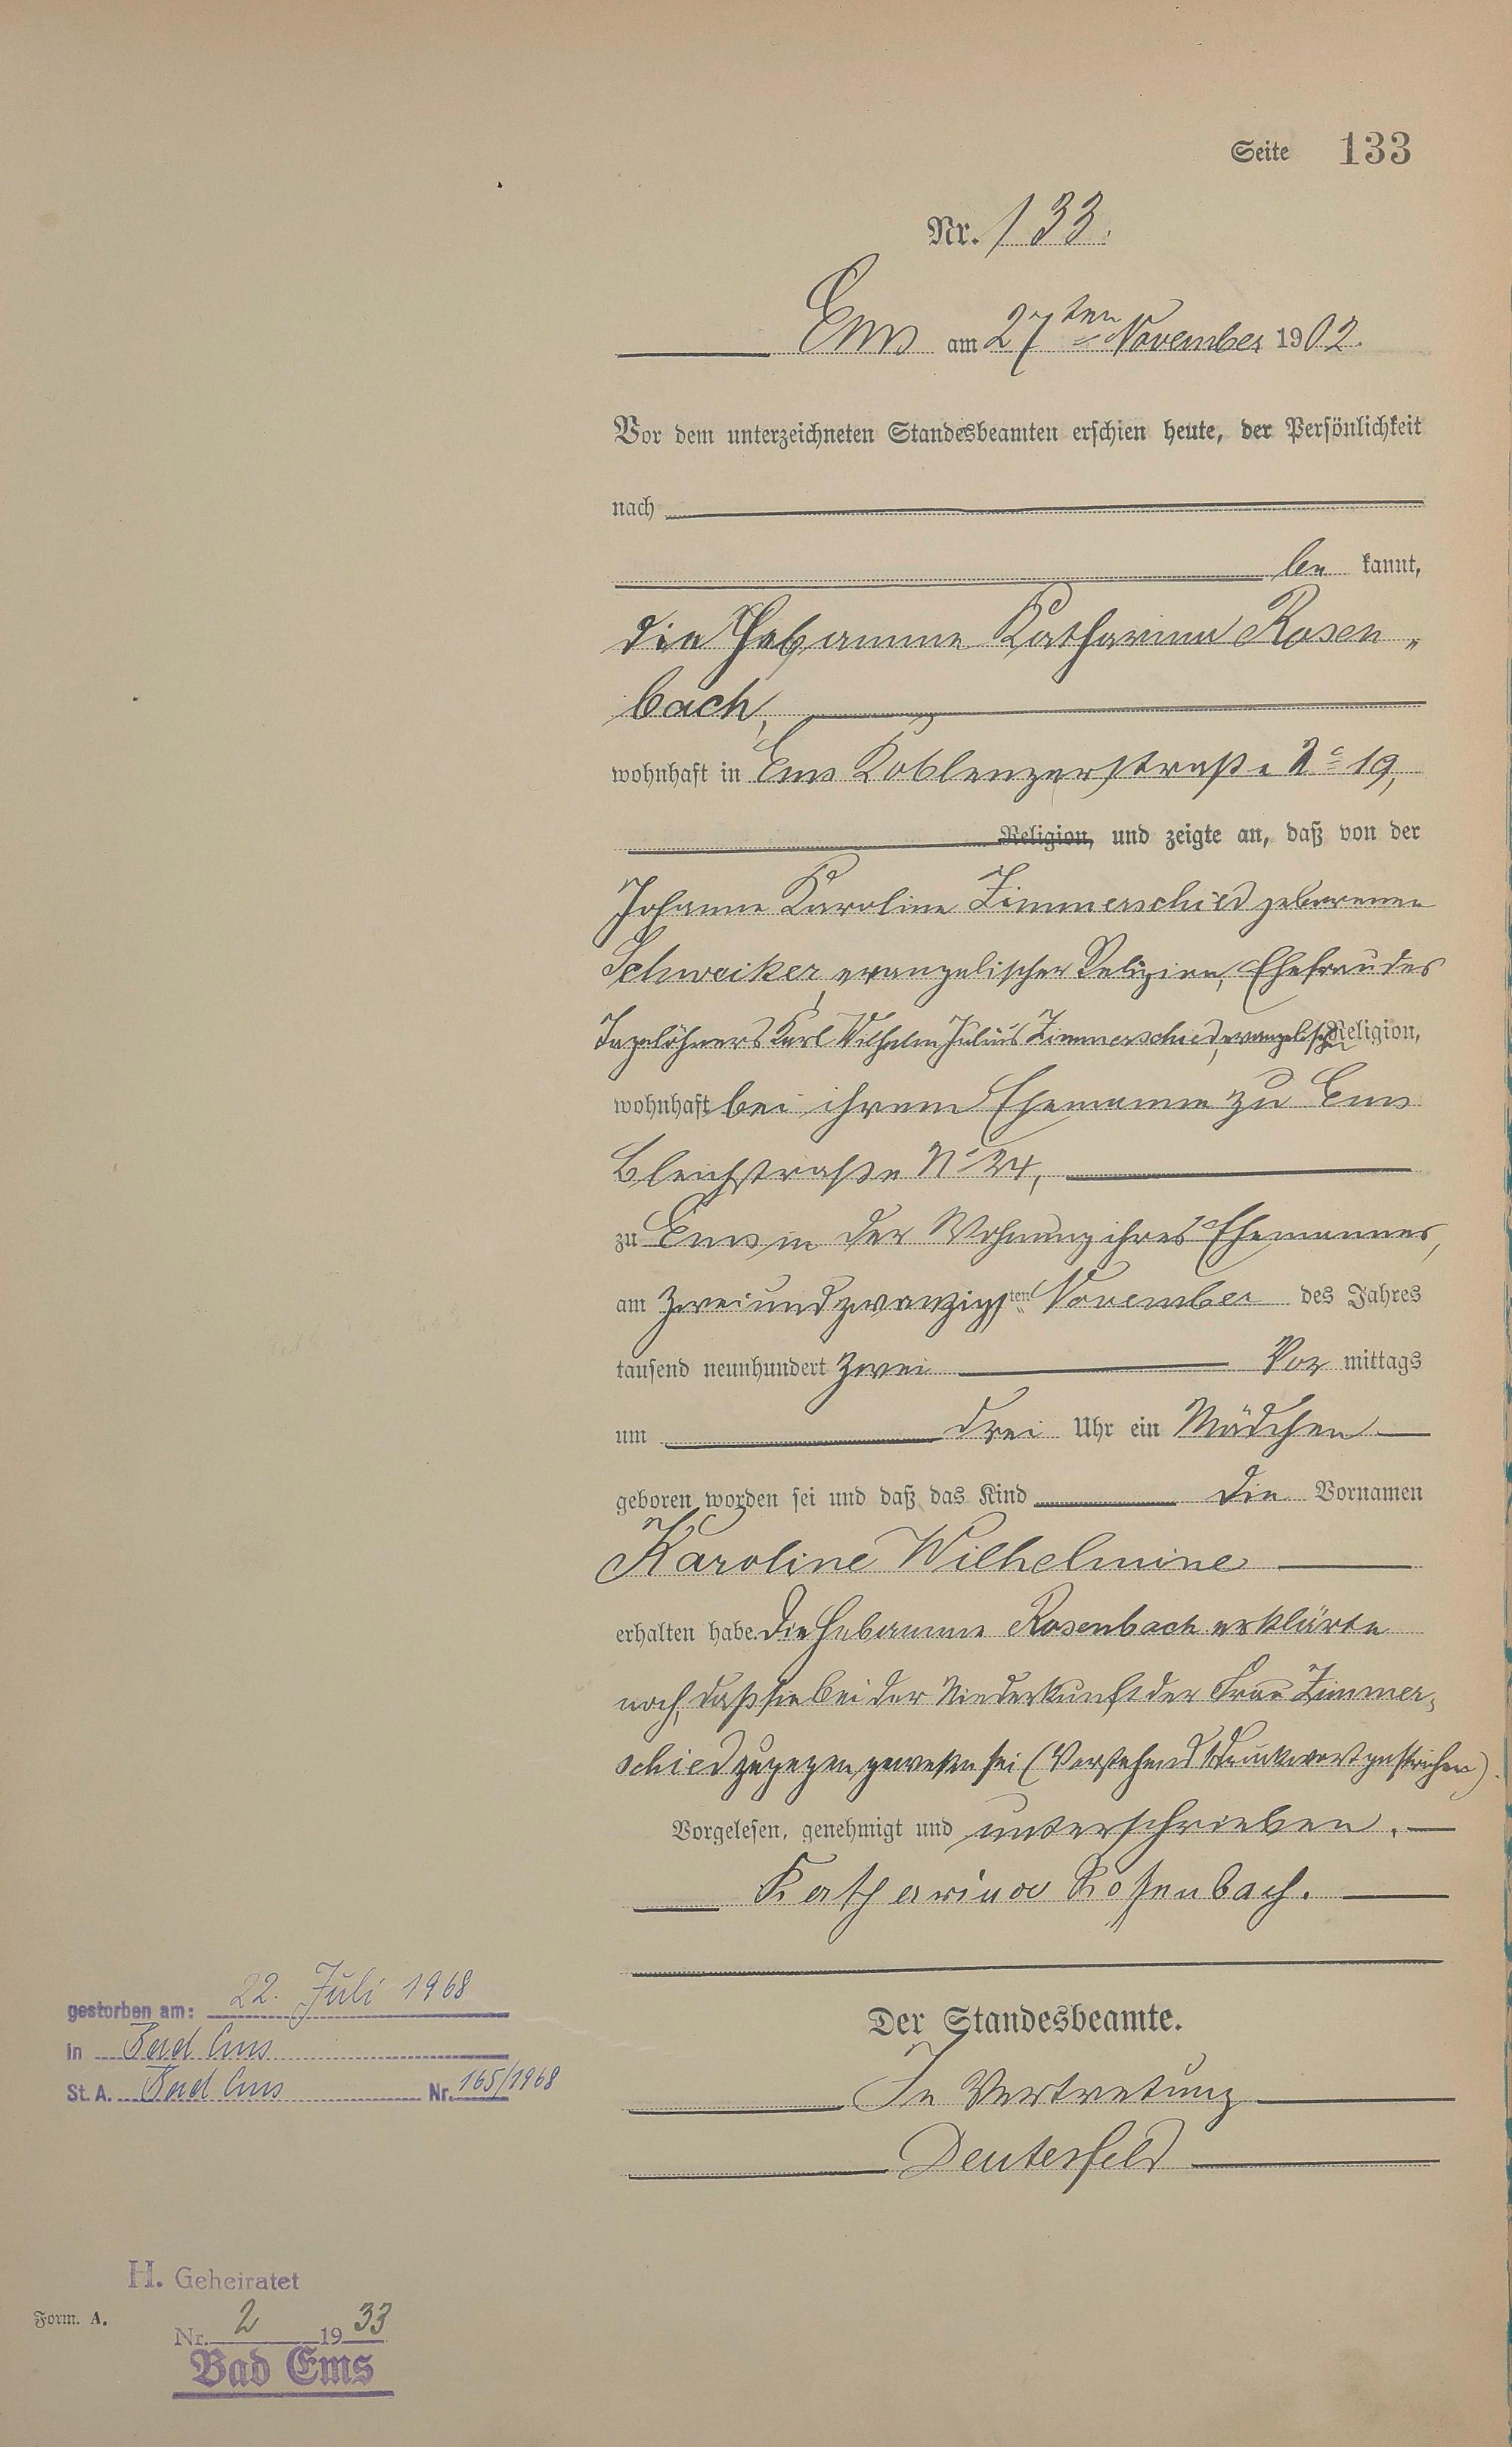 Seite 133
Nr. 133.
Ems am 27ten November 1902.
Vor dem unterzeichneten Standesbeamten erschien heute, der Persönlichkeit
nach
be kannt,
die Hebamme Katharina Rosen„
bach,
wohnhaft in Ems Koblenzerstraße No 19,
Religion, und zeigte an, daß von der
Johanne Karoline Zimmerschied geborenen
Schweiker, evangelischer Religion, Ehefrau des
Tagelöhners Karl Wilhelm Julius Zimmerschied, evangelischer Religion,
wohnhaft bei ihrem Ehemanne zu Ems
Bleichstraße No 24,
zu Ems in der Wohnung ihres Ehemannes,
am zweiundzwanzigsten November des Jahres
tausend neunhundert zwei Vor mittags
um drei Uhr ein Mädchen
geboren worden sei und daß das Kind die Vornamen
Karoline Wilhelmine
erhalten habe. Die Hebamme Rosenbach erklärte
noch, daß sie bei der Niederkunft der Frau Zimmer„
schied zugegen gewesen sei (Vorstehend 1 Druckwort gestrichen).
Vorgelesen, genehmigt und unterschrieben.
Katharina Rosenbach.
Der Standesbeamte.
In Vertretung
Deutesfeld
gestorben am: 22. Juli 1968
in Bad Ems
St. A. Bad Ems Nr. 165/1968
H. Geheiratet
Form. A.
Nr. 2 1933
Bad Ems